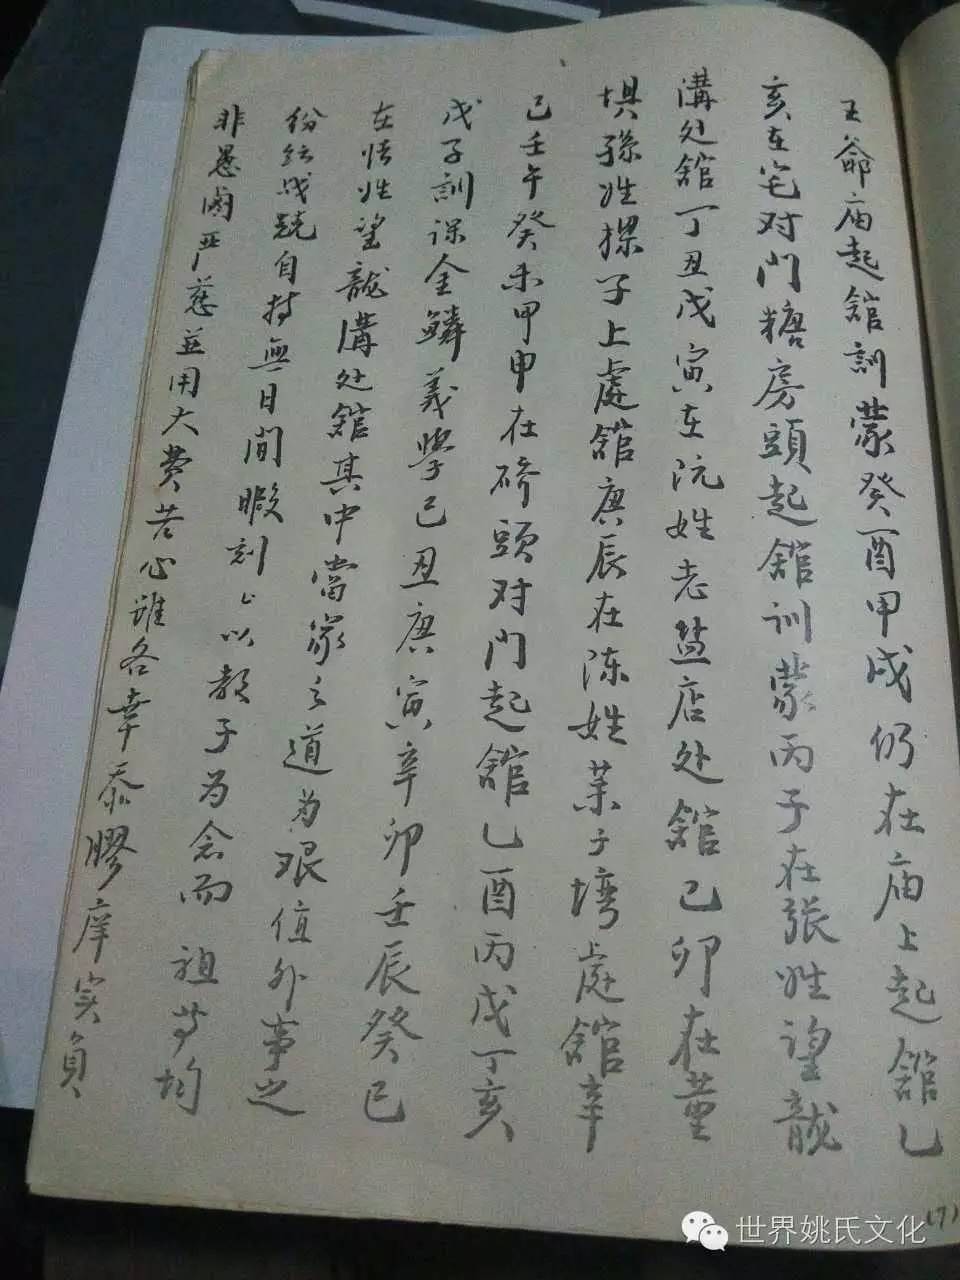 王爺庙起舘訓蒙癸酉甲戌仍在庙上起舘乙
亥在宅对門糖房頭起舘训蒙丙子在張姓望龍
溝处舘丁丑戊寅在阮姓老盐店处舘己卯在董
垻孫姓樑子上處舘庚辰在陈姓葉子塆處舘辛
己壬午癸未甲申在磅頭对門起舘乙酉丙戌丁亥
戊子訓课金鱗義學己丑庚寅辛卯壬辰癸巳
在悟姓望龍溝处舘其中當家之道为艰值外事之
纷纭战兢自持無日間暇刻刻以教子为念而祖等均
非愚鹵严慈並用大费苦心雖各幸忝膠庠实負
(7)
世界姚氏文化